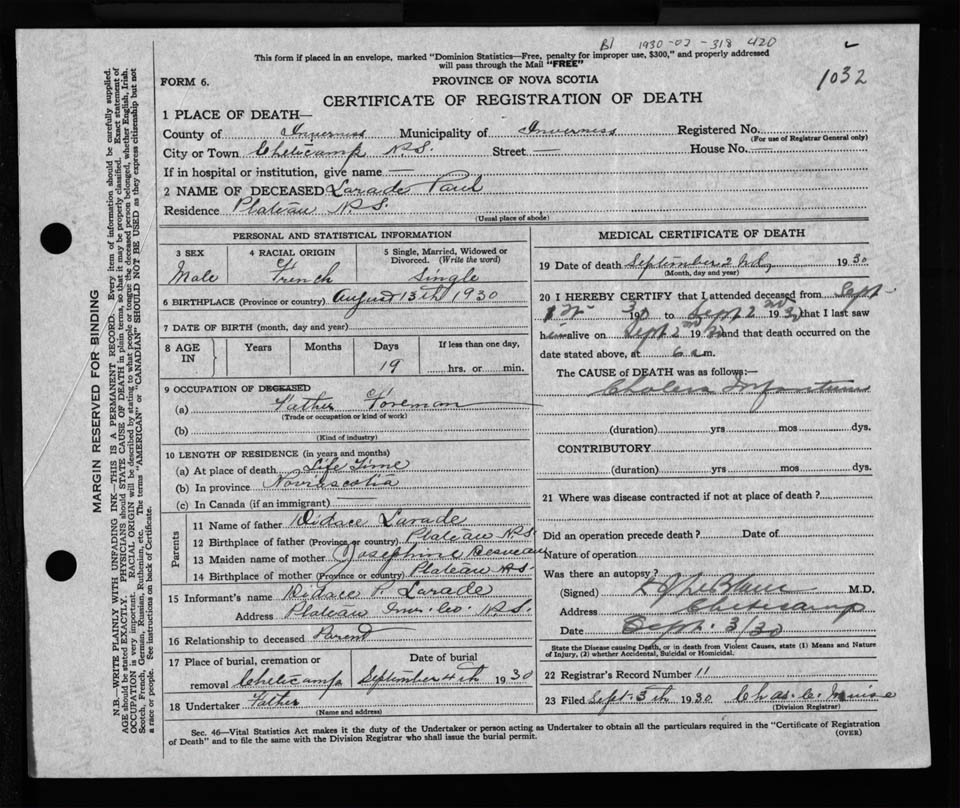 B1 1930-02-318 420
This form if placed in an envelope, marked "Dominion Statistics—Free, penalty for improper use, $300," and properly addressed
will pass through the Mail "FREE"
1032
FORM 6.
PROVINCE OF NOVA SCOTIA
CERTIFICATE OF REGISTRATION OF DEATH
1 PLACE OF DEATH—
County of Inverness Municipality of Inverness Registered No.
(For use of Registrar General only)
City or Town Cheticamp N.S. Street — House No. —
If in hospital or institution, give name —
2 NAME OF DECEASED Larade Paul
Residence Plateau N.S.
(Usual place of abode)
PERSONAL AND STATISTICAL INFORMATION
3 SEX 4 RACIAL ORIGIN 5 Single, Married, Widowed or Divorced. (Write the word)
Male French Single
6 BIRTHPLACE (Province or country) August 13th 1930
7 DATE OF BIRTH (month, day and year)
8 AGE IN Years Months Days If less than one day,
19 hrs. or min.
9 OCCUPATION OF DECEASED
(a) Father Foreman
(Trade or occupation or kind of work)
(b)
(Kind of industry)
10 LENGTH OF RESIDENCE (in years and months)
(a) At place of death Life Time
(b) In province Nova Scotia
(c) In Canada (if an immigrant)
Parents
11 Name of father Didace Larade
12 Birthplace of father (Province or country) Plateau N.S.
13 Maiden name of mother Josephine
14 Birthplace of mother (Province or country) Plateau N.S.
15 Informant's name Didace P. Larade
Address Plateau Inv. Co. N.S.
16 Relationship to deceased Parent
17 Place of burial, cremation or removal Cheticamp Date of burial September 4th 1930
18 Undertaker Father
(Name and address)
MEDICAL CERTIFICATE OF DEATH
19 Date of death September 2nd, 1930
(Month, day and year)
20 I HEREBY CERTIFY that I attended deceased from Sept
1st 1930 to Sept 2nd 1930 that I last saw
him alive on Sept 2nd 1930 and that death occurred on
date stated above, at 6 a.m.
The CAUSE of DEATH was as follows:—
Cholera Infantum
(duration) yrs mos dys.
CONTRIBUTORY
(duration) yrs mos dys.
21 Where was disease contracted if not at place of death?
Did an operation precede death? Date of
Nature of operation
Was there an autopsy?
(Signed) LeBlanc M.D.
Address Cheticamp
Date Sept. 3/30
State the Disease causing Death, or in death from Violent Causes, state (1) Means and Nature
of Injury, (2) whether Accidental, Suicidal or Homicidal.
22 Registrar's Record Number 11
23 Filed Sept. 5th 1930 Chas. C.
(Division Registrar)
Sec. 46—Vital Statistics Act makes it the duty of the Undertaker or person acting as Undertaker to obtain all the particulars required in the "Certificate of Registration
of Death" and to file the same with the Division Registrar who shall issue the burial permit.
(OVER)
MARGIN RESERVED FOR BINDING
N.B. WRITE PLAINLY WITH UNFADING INK—THIS IS A PERMANENT RECORD. Every item of information should be carefully supplied.
AGE should be stated EXACTLY. PHYSICIANS should STATE CAUSE OF DEATH in plain terms, so that it may be properly classified. Exact statement of
OCCUPATION is very important. RACIAL ORIGIN will be described by stating to what people or tongue the deceased person belonged, whether English, Irish,
Scotch, French, German, Russian, Ruthenian, etc. The terms "AMERICAN" or "CANADIAN" SHOULD NOT BE USED as they express citizenship but not
a race or people. See instructions on back of Certificate.